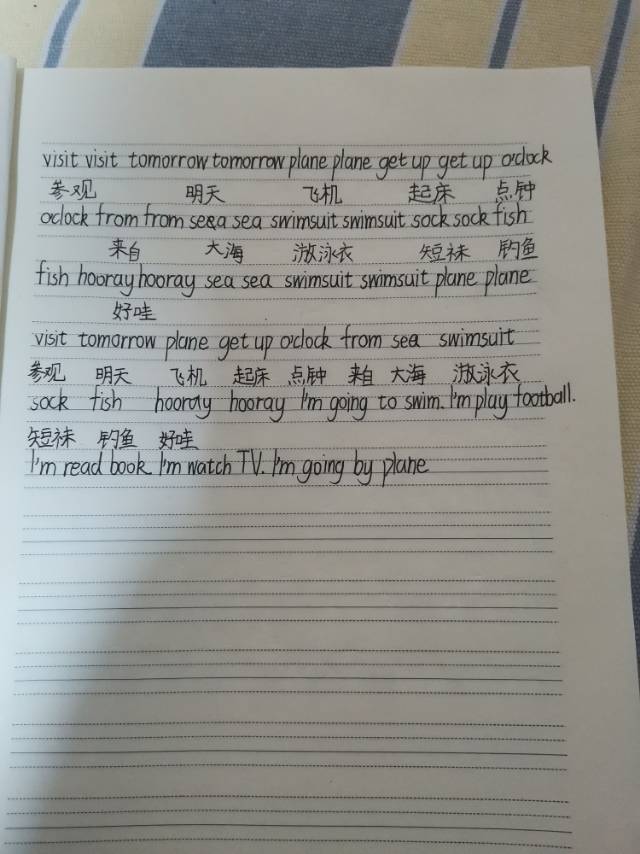 visit visit tomorrow tomorrow plane plane get up get up o'clock
参观 明天 飞机 起床 点钟
o'clock from from sea sea swimsuit swimsuit sock sock fish
来自 大海 游泳衣 短袜 钓鱼
fish hooray hooray sea sea swimsuit swimsuit plane plane
好哇
visit tomorrow plane get up o'clock from sea swimsuit
参观 明天 飞机 起床 点钟 来自 大海 游泳衣
sock fish hooray hooray I'm going to swim. I'm play football.
短袜 钓鱼 好哇
I'm read book. I'm watch TV. I'm going by plane